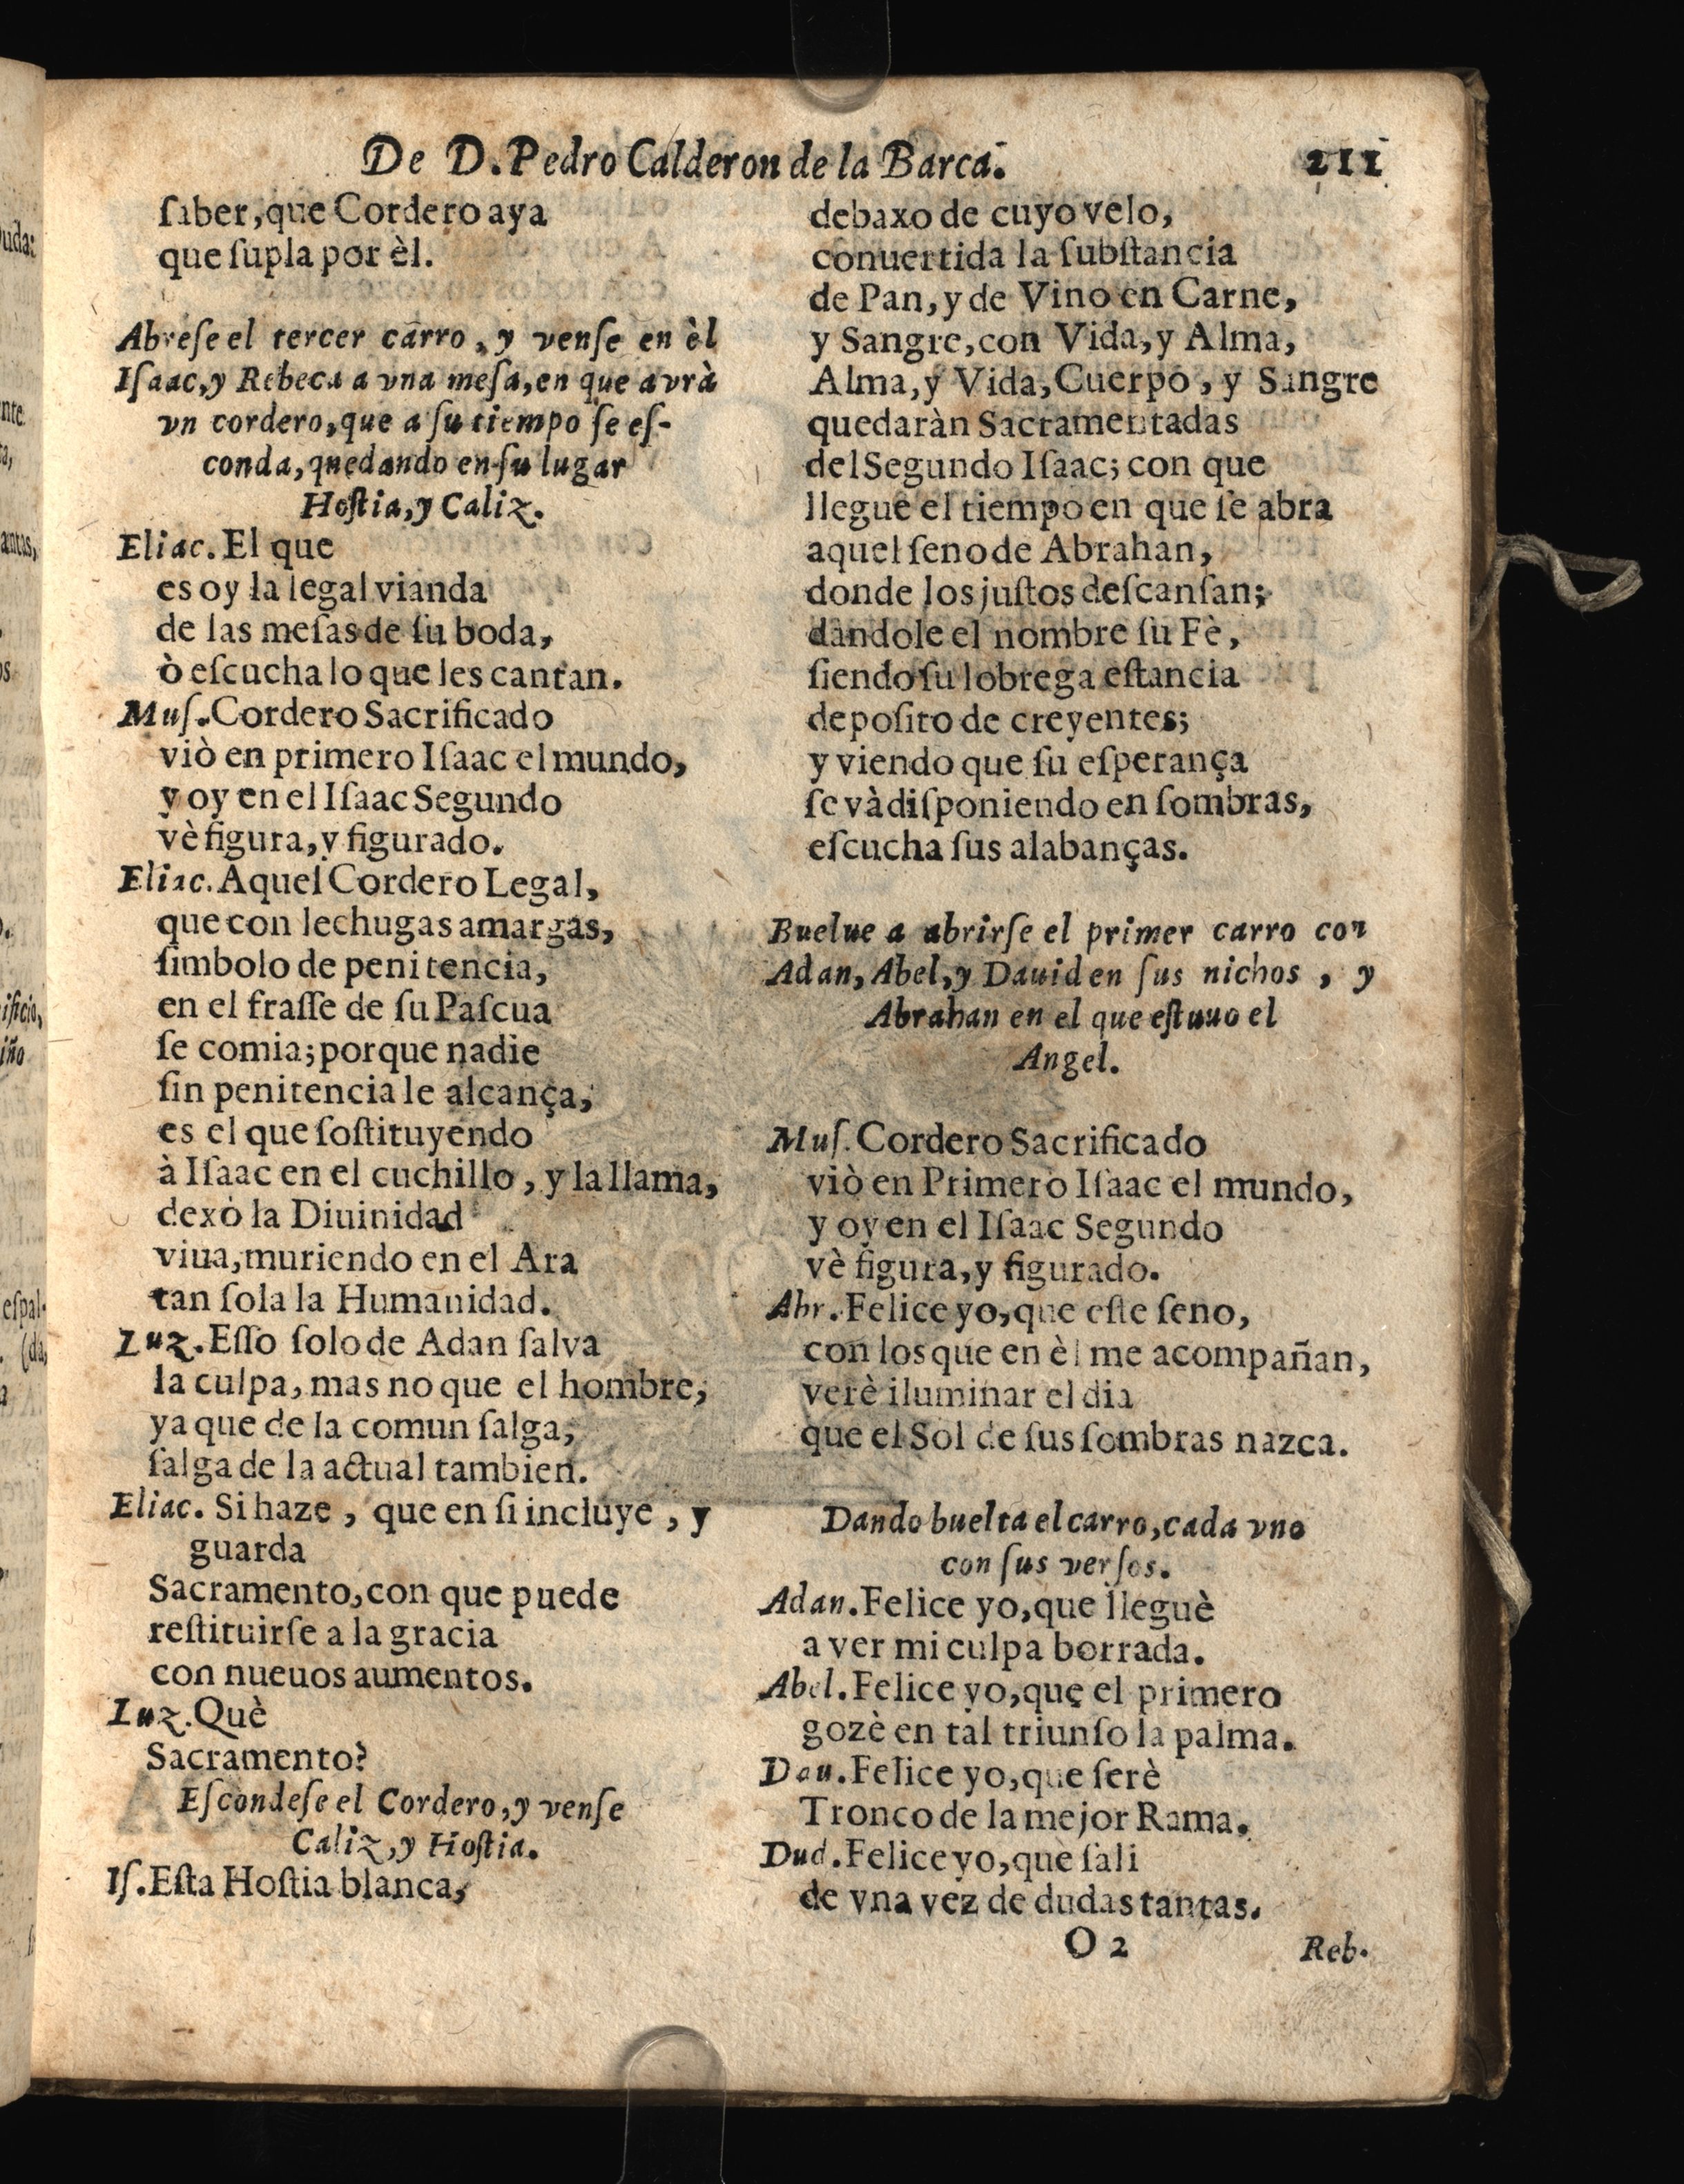 De D. Pedro Calderon de la Barca. 211
ſaber, que Cordero aya
que ſupla por èl.
Abreſe el tercer carro, y venſe en èl
Iſaac, y Rebeca a vna meſa, en que avrà
vn cordero, que a ſu tiempo ſe eſ-
conda, quedando en ſu lugar
Hoſtia, y Caliz.
Eliac. El que
es oy la legal vianda
de las meſas de ſu boda,
ò eſcucha lo que les cantan.
Muſ. Cordero Sacrificado
viò en primero Iſaac el mundo,
y oy en el Iſaac Segundo
vè figura, y figurado.
Eliac. Aquel Cordero Legal,
que con lechugas amargas,
ſimbolo de penitencia,
en el fraſſe de ſu Paſcua
ſe comia; porque nadie
ſin penitencia le alcança,
es el que ſoſtituyendo
à Iſaac en el cuchillo, y la llama,
dexò la Diuinidad
viua, muriendo en el Ara
tan ſola la Humanidad.
Luz. Eſſo ſolo de Adan ſalva
la culpa, mas no que el hombre,
ya que de la comun ſalga,
ſalga de la actual tambien.
Eliac. Si haze, que en ſi incluye, y
guarda
Sacramento, con que puede
reſtituirſe a la gracia
con nueuos aumentos.
Luz. Què
Sacramento?
Eſcondeſe el Cordero, y venſe
Caliz, y Hoſtia.
Iſ. Eſta Hoſtia blanca,
debaxo de cuyo velo,
conuertida la ſubſtancia
de Pan, y de Vino en Carne,
y Sangre, con Vida, y Alma,
Alma, y Vida, Cuerpo, y Sangre
quedaràn Sacramentadas
del Segundo Iſaac; con que
llegue el tiempo en que ſe abra
aquel ſeno de Abrahan,
donde los juſtos deſcanſan;
dandole el nombre ſu Fè,
ſiendo ſu lobrega eſtancia
depoſito de creyentes;
y viendo que ſu eſperança
ſe và diſponiendo en ſombras,
eſcucha ſus alabanças.
Buelue a abrirſe el primer carro con
Adan, Abel, y Dauid en ſus nichos, y
Abrahan en el que eſtuuo el
Angel.
Muſ. Cordero Sacrificado
viò en Primero Iſaac el mundo,
y oy en el Iſaac Segundo
vè figura, y figurado.
Abr. Felice yo, que eſte ſeno,
con los que en èl me acompañan,
verè iluminar el dia
que el Sol de ſus ſombras nazca.
Dando buelta el carro, cada vno
con ſus verſos.
Adan. Felice yo, que lleguè
a ver mi culpa borrada.
Abel. Felice yo, que el primero
gozè en tal triunfo la palma.
Dau. Felice yo, que ſerè
Tronco de la mejor Rama.
Dud. Felice yo, que ſali
de vna vez de dudas tantas.
O 2 Reb.